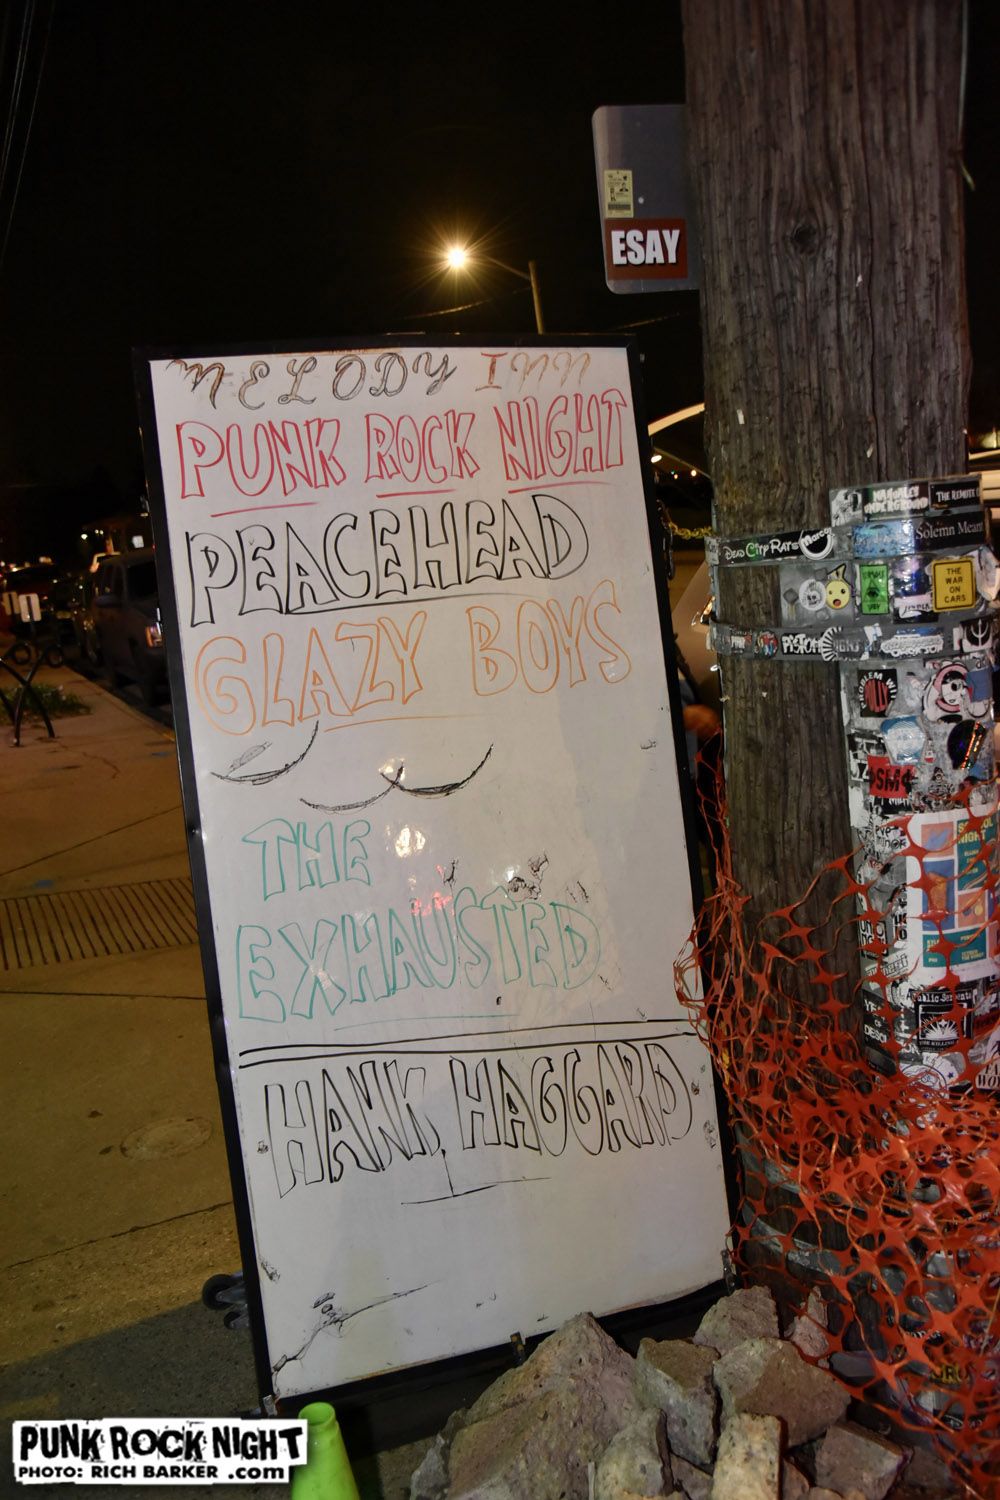 ESAY
MELODY INN
PUNK ROCK NIGHT
PEACEHEAD
GLAZY BOYS
THE
EXHAUSTED
HANK HAGGARD
THE REMOTE
Solemn Mean
DEAD CITY RATS
THE
WAR
ON
CARS
PROBLEM WITH
$M¢
NIGHT
Public Serpents
PUNK ROCK NIGHT
PHOTO: RICH BARKER .com